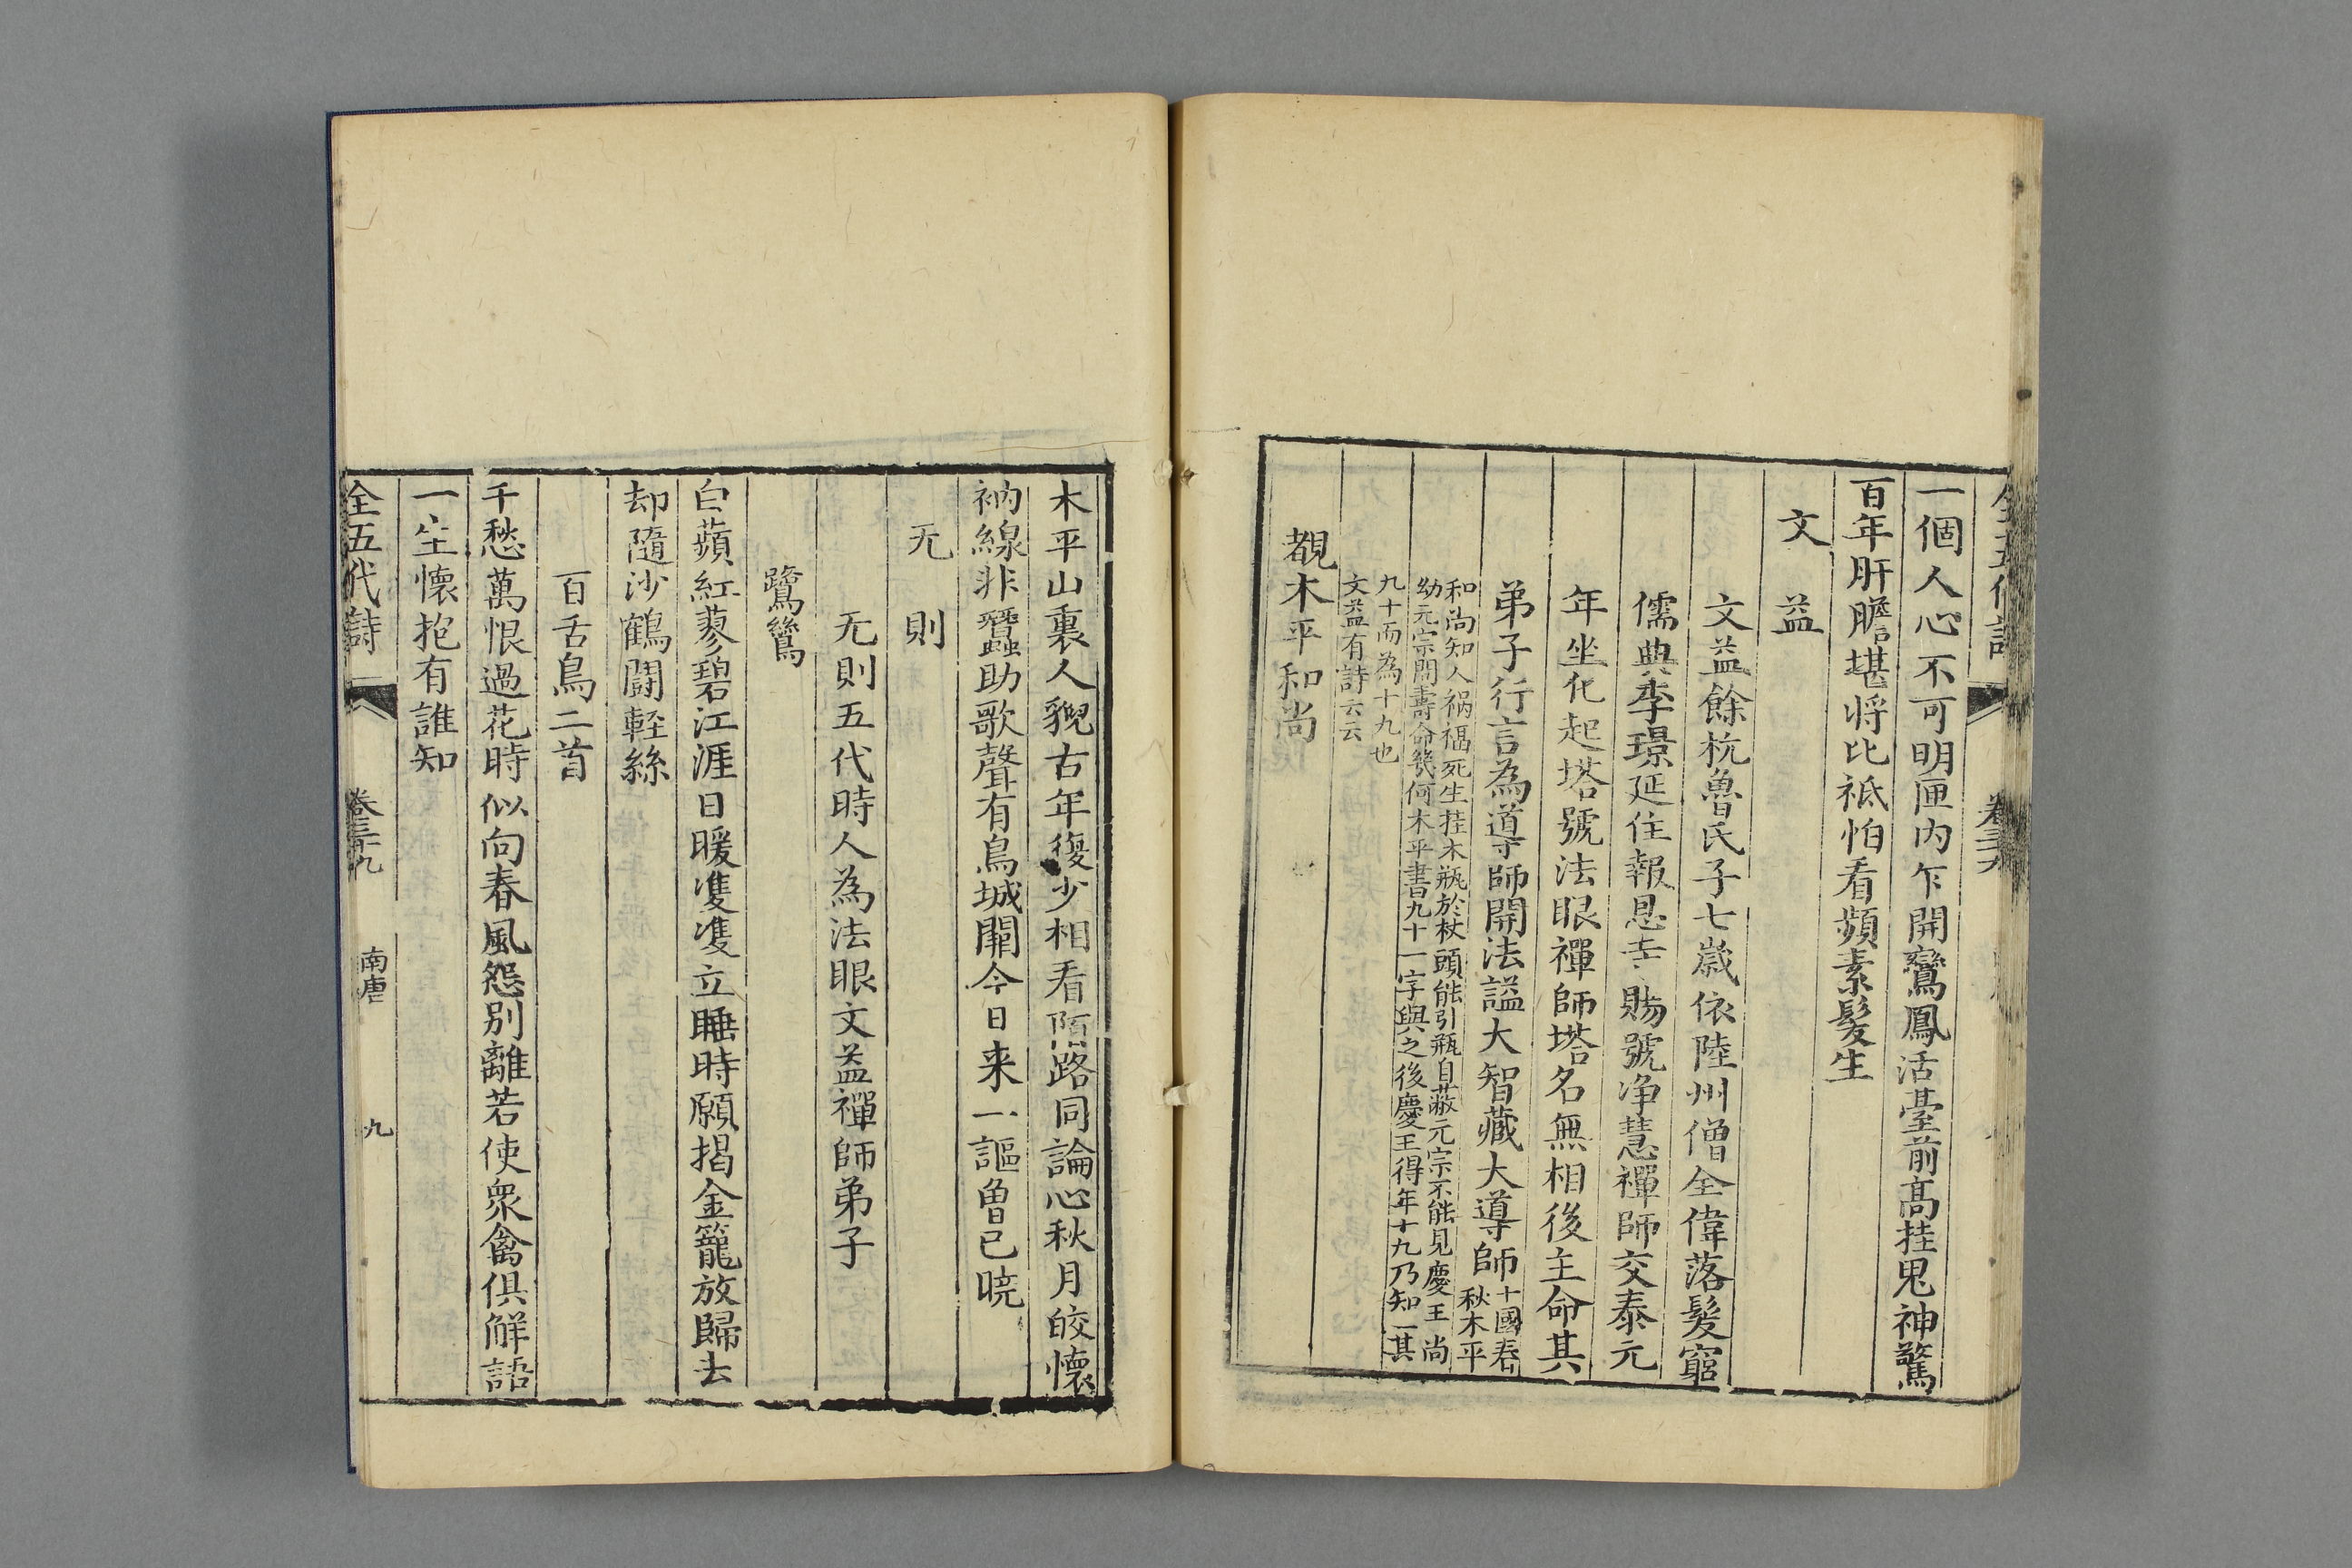 一個人心不可明匣内乍開鸞鳳活臺前髙挂鬼神驚
百年肝膽堪将比祗怕看頻素髮生
文益
文益餘杭魯氏子七嵗依陸州僧全偉落髮窮
儒典李璟延住報恩寺賜號净慧禪師交泰元
年坐化起塔號法眼禪師塔名無相後主命其
弟子行言為導師開法謚大智藏大導師
十國春
秋木平
和尚知人禍福死生挂木瓶於杖頭能引瓶自蔽元宗不能見慶王尚
幼元宗問壽命幾何木平書九十一字與之後慶王得年十九乃知一其
九十而為十九也
文益有詩云云
覩木平和尚
木平山裏人貌古年復少相看陌路同論心秋月皎懷
衲線非蠶助歌聲有鳥城闕今日来一謳曾已暁
无則
无則五代時人為法眼文益禪師弟子
鷺鷥
白蘋紅蓼碧江涯日暖雙雙立睡時願揭金籠放歸去
却隨沙鶴鬪輕絲
百舌鳥二首
千愁萬恨過花時似向春風怨別離若使衆禽俱解語
一生懷抱有誰知
全五代詩
卷三十九
南唐
九